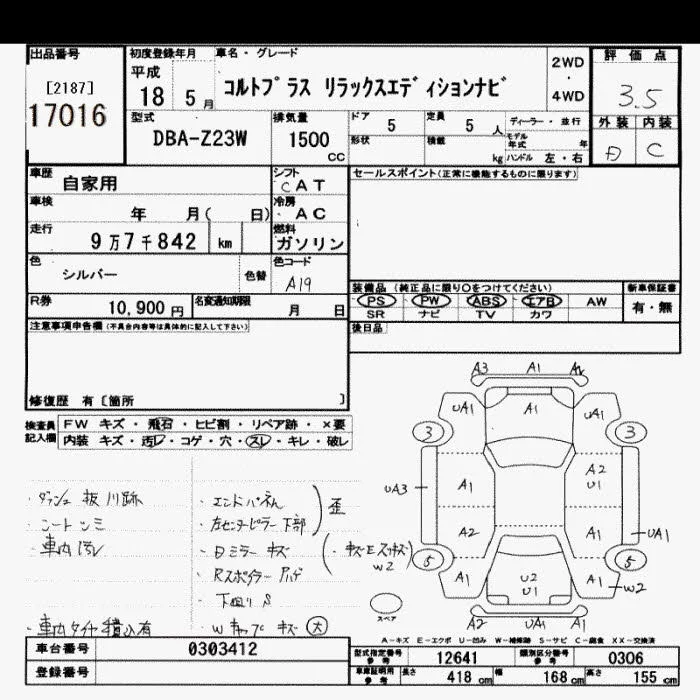 出品番号
[2187]
17016
初度登録年月
平成
18 5 月
車名・グレード
コルトプラス リラックスエディションナビ
2WD
・
4WD
評価点
3.5
外装 内装
D C
型式
DBA-Z23W
排気量
1500
CC
ドア
5
定員
5 人
形状
積載
kg
ディーラー・並行
モデル年式 年
ハンドル 左・右
車歴
自家用
車検
年 月( 日)
走行
9万7千842 km
シフト
CAT
冷房
AC
燃料
ガソリン
色
シルバー
色替
色コード
A19
R券
10,900 円
名変通知期限
月 日
セールスポイント(正常に機能するものに限ります)
装備品 (純正品に限り○をつけてください)
PS PW ABS エアB AW
SR ナビ TV カワ
新車保証書
有・無
後日品
注意事項申告欄 (不具合内容等は具体的に記入して下さい)
修復歴 有〔箇所 〕
検査員記入欄
FW キズ・飛石・ヒビ割・リペア跡・×要
内装 キズ・汚レ・コゲ・穴・スレ・キレ・破レ
・シートシミ
・車内汚レ
・車内タイヤ積込有
・エンドパネル
・左センターピラー下部
歪
・Dミラーキズ
・Rスポイラー
・下廻りS
・Wキャップキズ 大
W2
A3 A1
UA1 A1 UA1
3 3
A2
U1
UA3 A1
A2 A1 UA1
5 5
A1 U2 A1 W2
U1
スペア
A2 UA1 A1
A-キズ E-エクボ U-凹み W-補修跡 S-サビ C-腐食 XX-交換済
車台番号
0303412
登録番号
型式指定番号
参考
12641
類別区分番号
参考
0306
車庫証明用
参考
長さ
418 cm
幅
168 cm
高さ
155 cm